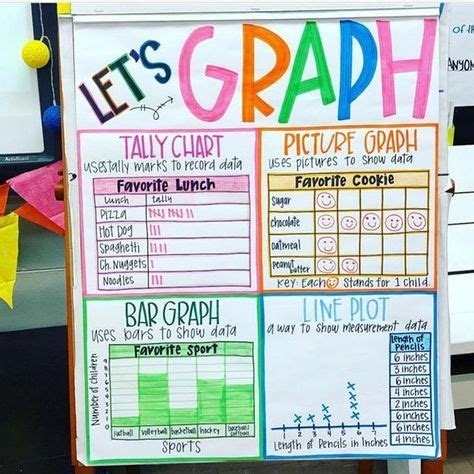 LET'S GRAPH
ActivBoard
ANYON
TALLY CHART
uses tally marks to record data
Favorite Lunch
Lunch tally
Pizza
Hot Dog
Spaghetti
Ch. Nuggets
Noodles
PICTURE GRAPH
uses pictures to show data
Favorite Cookie
Sugar
Chocolate
Oatmeal
Peanut butter
Key: Each Stands for 1 child.
BAR GRAPH
uses bars to show data
Favorite Sport
Number of Children
football volleyball basketball hockey baseball/softball
SPORTS
LINE PLOT
a way to show measurement data
Length of Pencils
6 inches
3 inches
6 inches
4 inches
2 inches
6 inches
5 inches
6 inches
4 inches
1 2 3 4 5 6 7
Length of Pencils in Inches